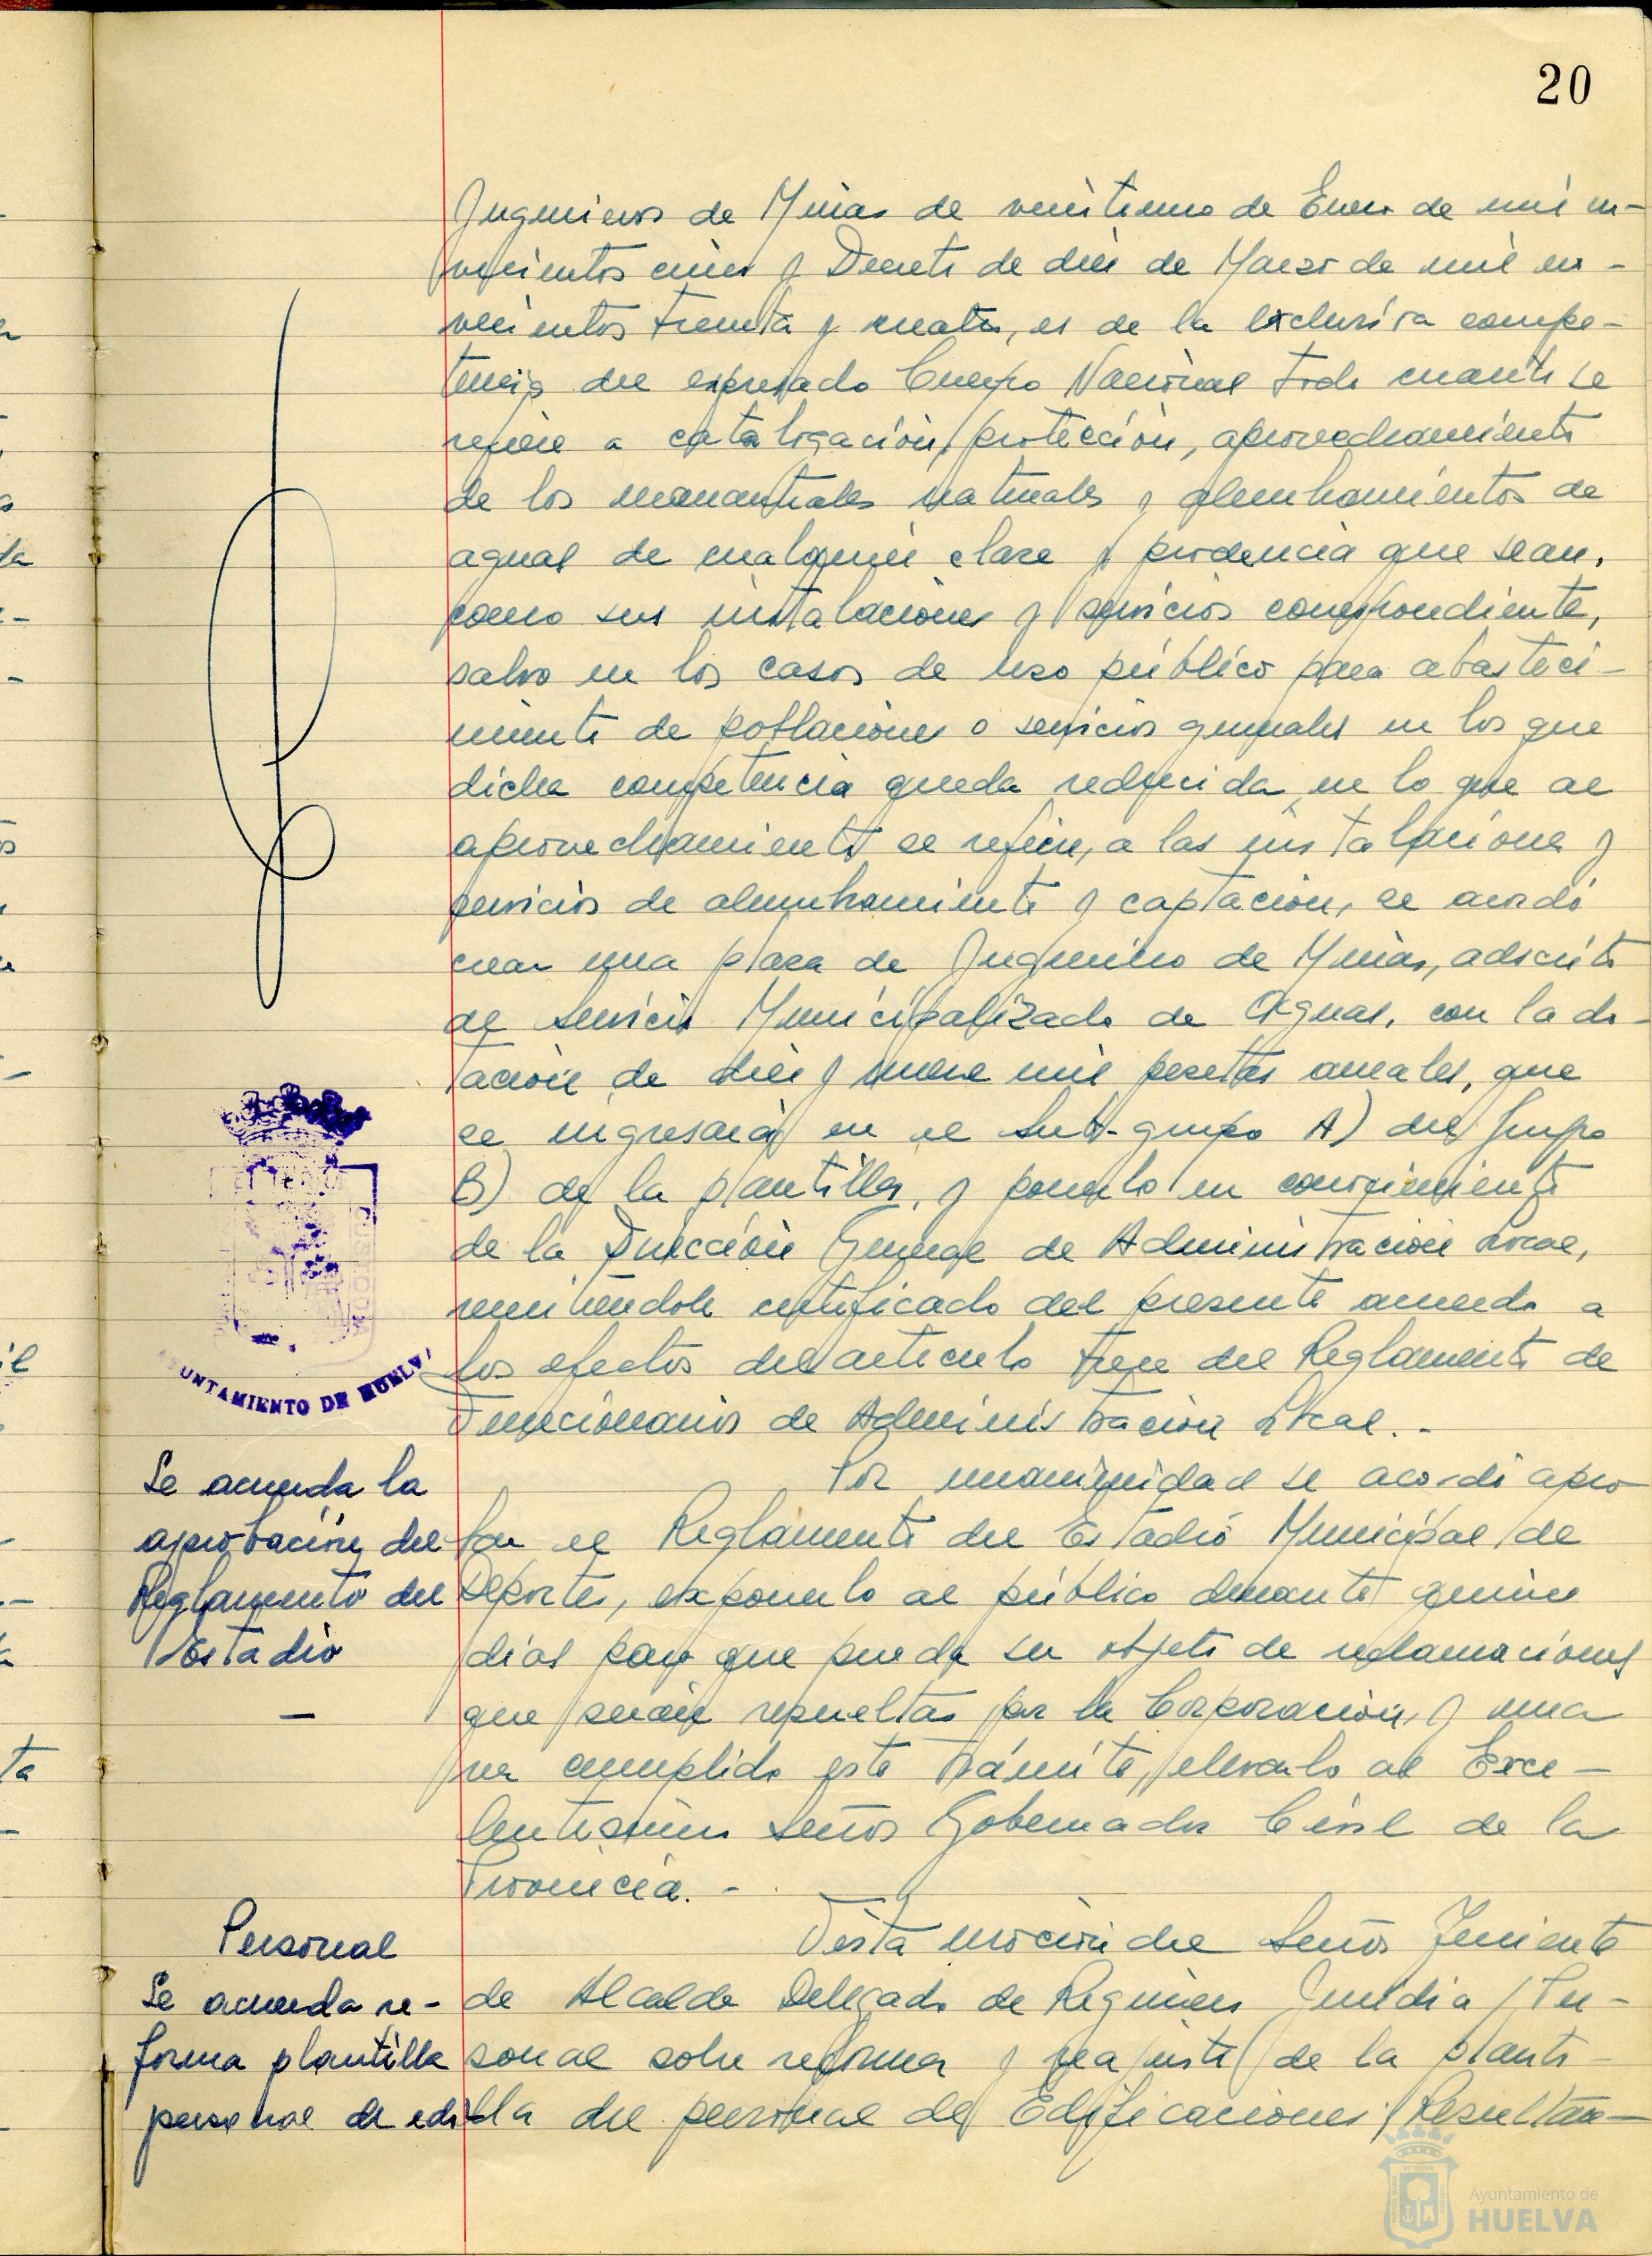 20
Ingenieros de Minas de veintiuno de Enero de mil no-
vecientos cinco y Decreto de diez de Marzo de mil no-
vecientos treinta y cuatro, es de la exclusiva compe-
tencia del expresado Cuerpo Nacional todo cuanto se
refiere a catalogación, protección, aprovechamiento
de los manantiales naturales y alumbramientos de
aguas de cualquier clase y procedencia que sean,
como sus instalaciones y servicios correspondiente,
salvo en los casos de uso público para abasteci-
miento de poblaciones o servicios generales en los que
dicha competencia queda reducida, en lo que al
aprovechamiento se refiere, a las instalaciones y
servicios de alumbramiento y captación, se acordó
crear una plaza de Ingeniero de Minas, adscrito
al Servicio Municipalizado de Aguas, con la do-
tación de diez y nueve mil pesetas anuales, que
se ingresará en el Sub-grupo A) del Grupo
B) de la plantilla, y ponerlo en conocimiento
de la Dirección General de Administración Local,
remitiéndole certificado del presente acuerdo a
los efectos del artículo trece del Reglamento de
Funcionarios de Administración Local.-
AYUNTAMIENTO DE HUELVA
Se acuerda la
aprobación del
Reglamento del
Estadio
—
Por unanimidad se acordó apro
bar el Reglamento del Estadio Municipal de
Deportes, exponerlo al público durante quince
días para que pueda ser objeto de reclamaciones
que serán resueltas por la Corporación, y una
vez cumplido este trámite, elevarlo al Exce-
lentísimo Señor Gobernador Civil de la
Provincia.-
Personal
Se acuerda re-
forma plantilla
personal de edi
Vista moción del Señor Teniente
de Alcalde Delegado de Régimen Jurídico y Per-
sonal sobre reforma y reajuste de la planti-
lla del personal de Edificaciones; Resultan-
Ayuntamiento de
HUELVA